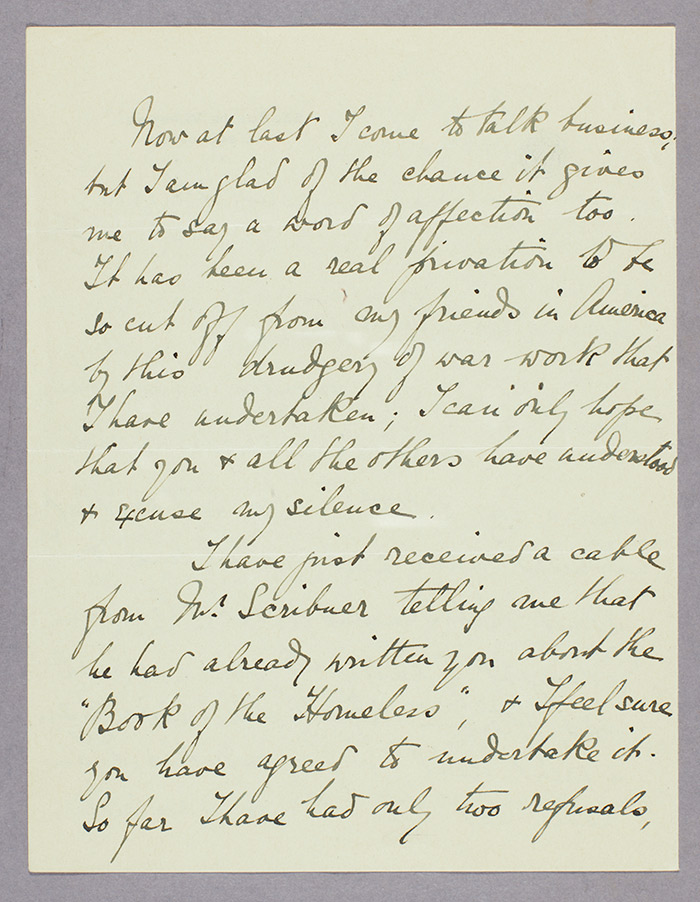 Now at last I come to talk business,
but I am glad of the chance it gives
me to say a word of affection too.
It has been a real privation to be
so cut off from my friends in America
by this drudgery of war work that
I have undertaken; I can only hope
that you & all the others have understood
& excuse my silence.
I have just received a cable
from Mr. Scribner telling me that
he had already written you about the
"Book of the Homeless", & I feel sure
you have agreed to undertake it.
So far I have had only two refusals,